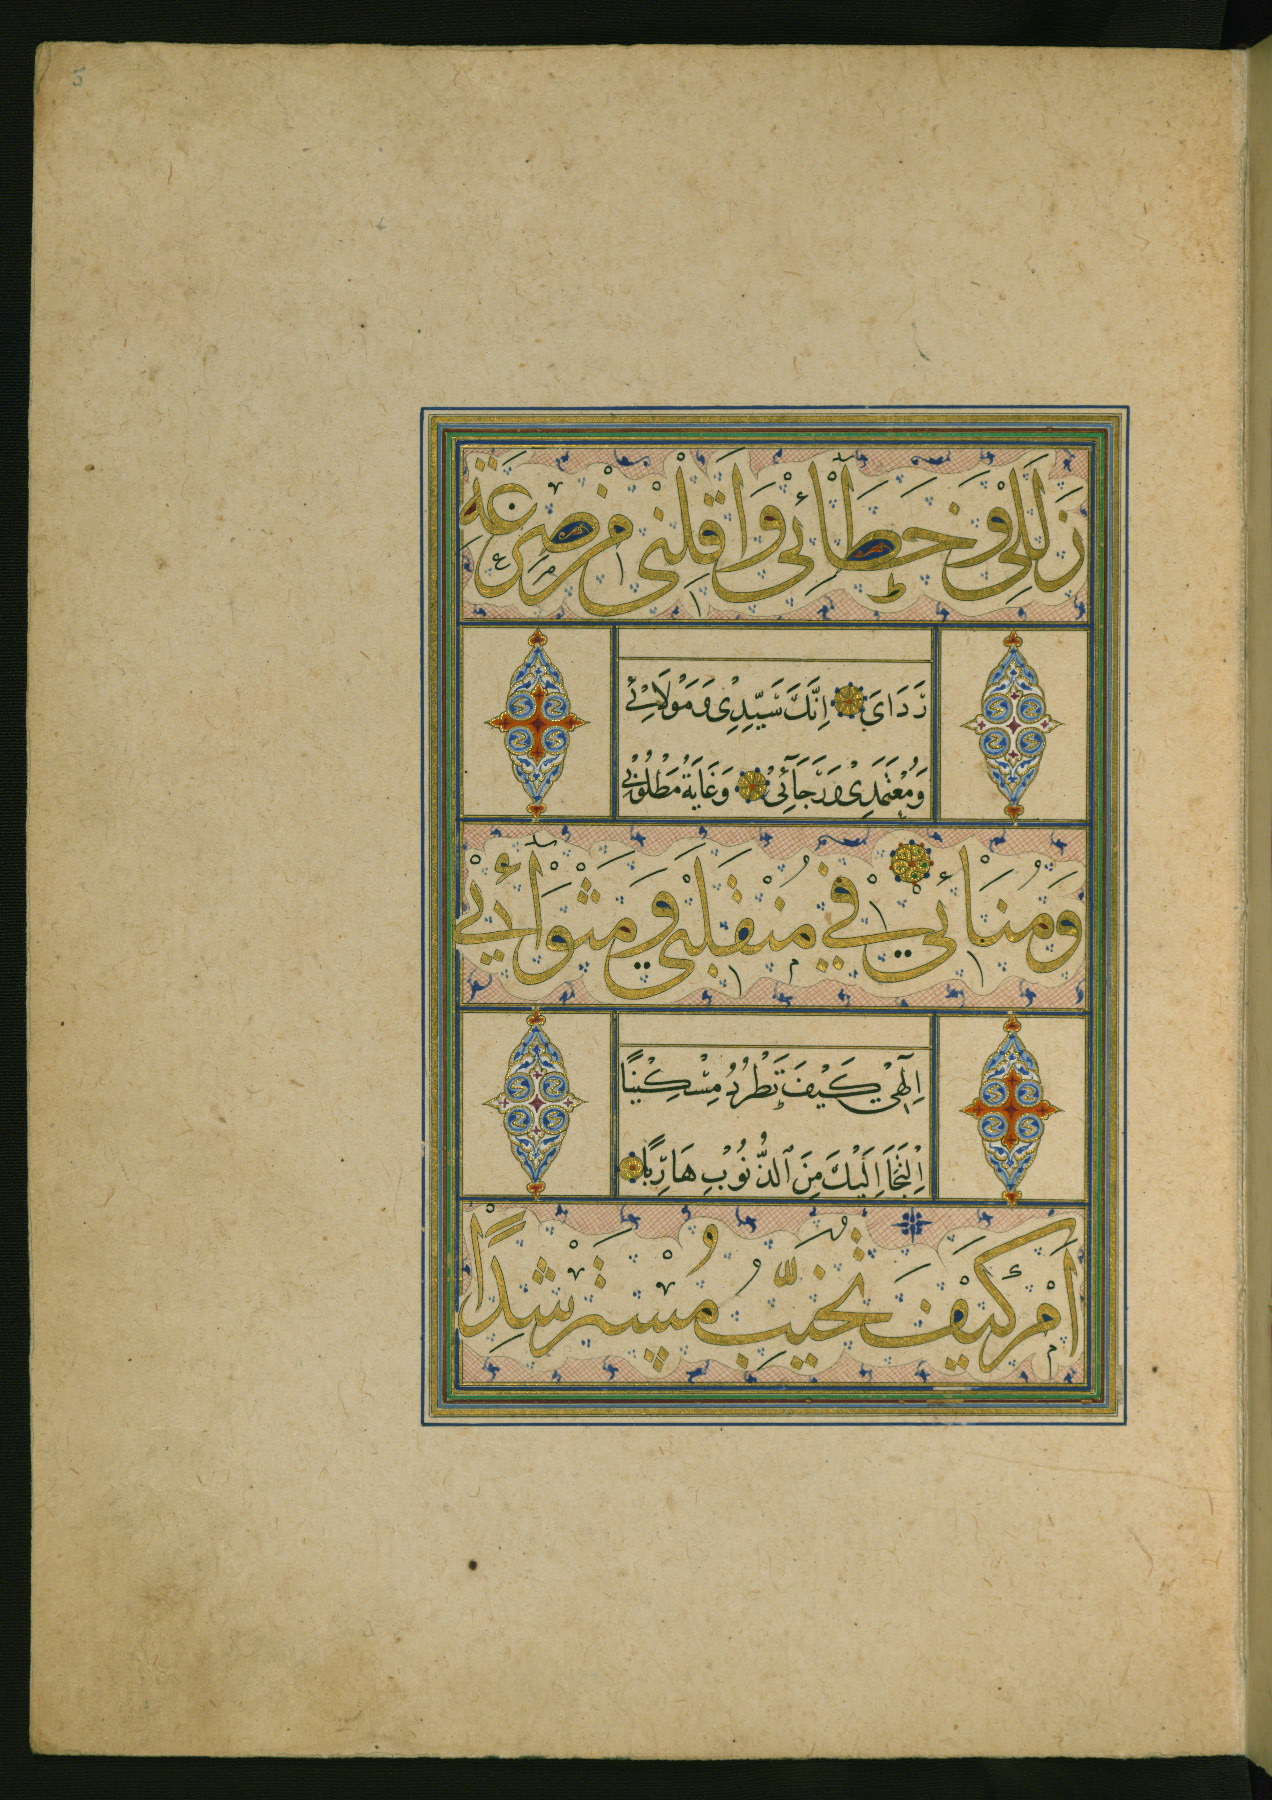 5
زَلَلِي وَخَطَائِي وَاَقِلْنِي مِنْ صَرْعَةِ
رَدَاىَ اِنَّكَ سَيِّدِى وَمَوْلَائِي
وَمُعْتَمَدِىْ وَرَجَآئِىْ وَغَايَةُ مَطْلُوْبِىْ
وَمُنَائِي فِي مُنْقَلَبِي وَمَثْوَائِي
اِلٰهِىْ كَيْفَ تَطْرُدُ مِسْكِيْنًا
اِلْتَجَاَ اِلَيْكَ مِنَ ٱلذُّنُوْبِ هَارِبًا
اَمْ كَيْفَ تُخَيِّبُ مُسْتَرْشِدًا